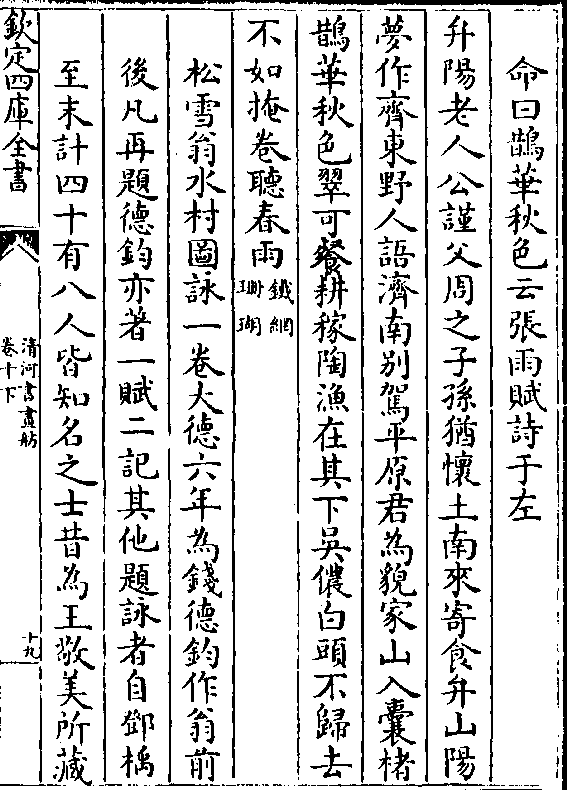 命曰鵲華秋色云張雨賦詩于左
弁陽老人公謹父周之子孫猶懷土南來寄食弁山陽
夢作齊東野人語濟南别駕平原君為貌家山入囊楮
鵲華秋色翠可餐耕稼陶漁在其下吳儂白頭不歸去
不如掩卷聽春雨鐵網珊瑚
松雪翁水村圖詠一卷大德六年為錢德鈞作翁前
後凡再題德鈞亦著一賦二記其他題詠者自鄧椅
至末計四十有八人皆知名之士昔為王敬美所藏
欽定四庫全書
清河書畫舫
卷十下
十九